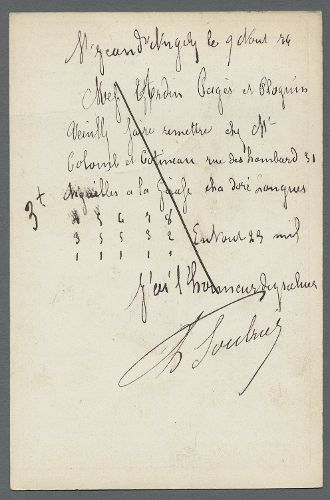 St Jean d'Angely le 9 Aout 76
Mes Hardin Pagès et Ploquin
Veuillez faire remettre chez Mr
Colomb et Cotineau rue des Lombard 31
Aiguilles a la Girafe cha doré Longues
3t
4 5 6 7 8
3 5 5 3 2
1 1 1 1 1
En tout 23 mil
J'ai l'honneur de vous saluer